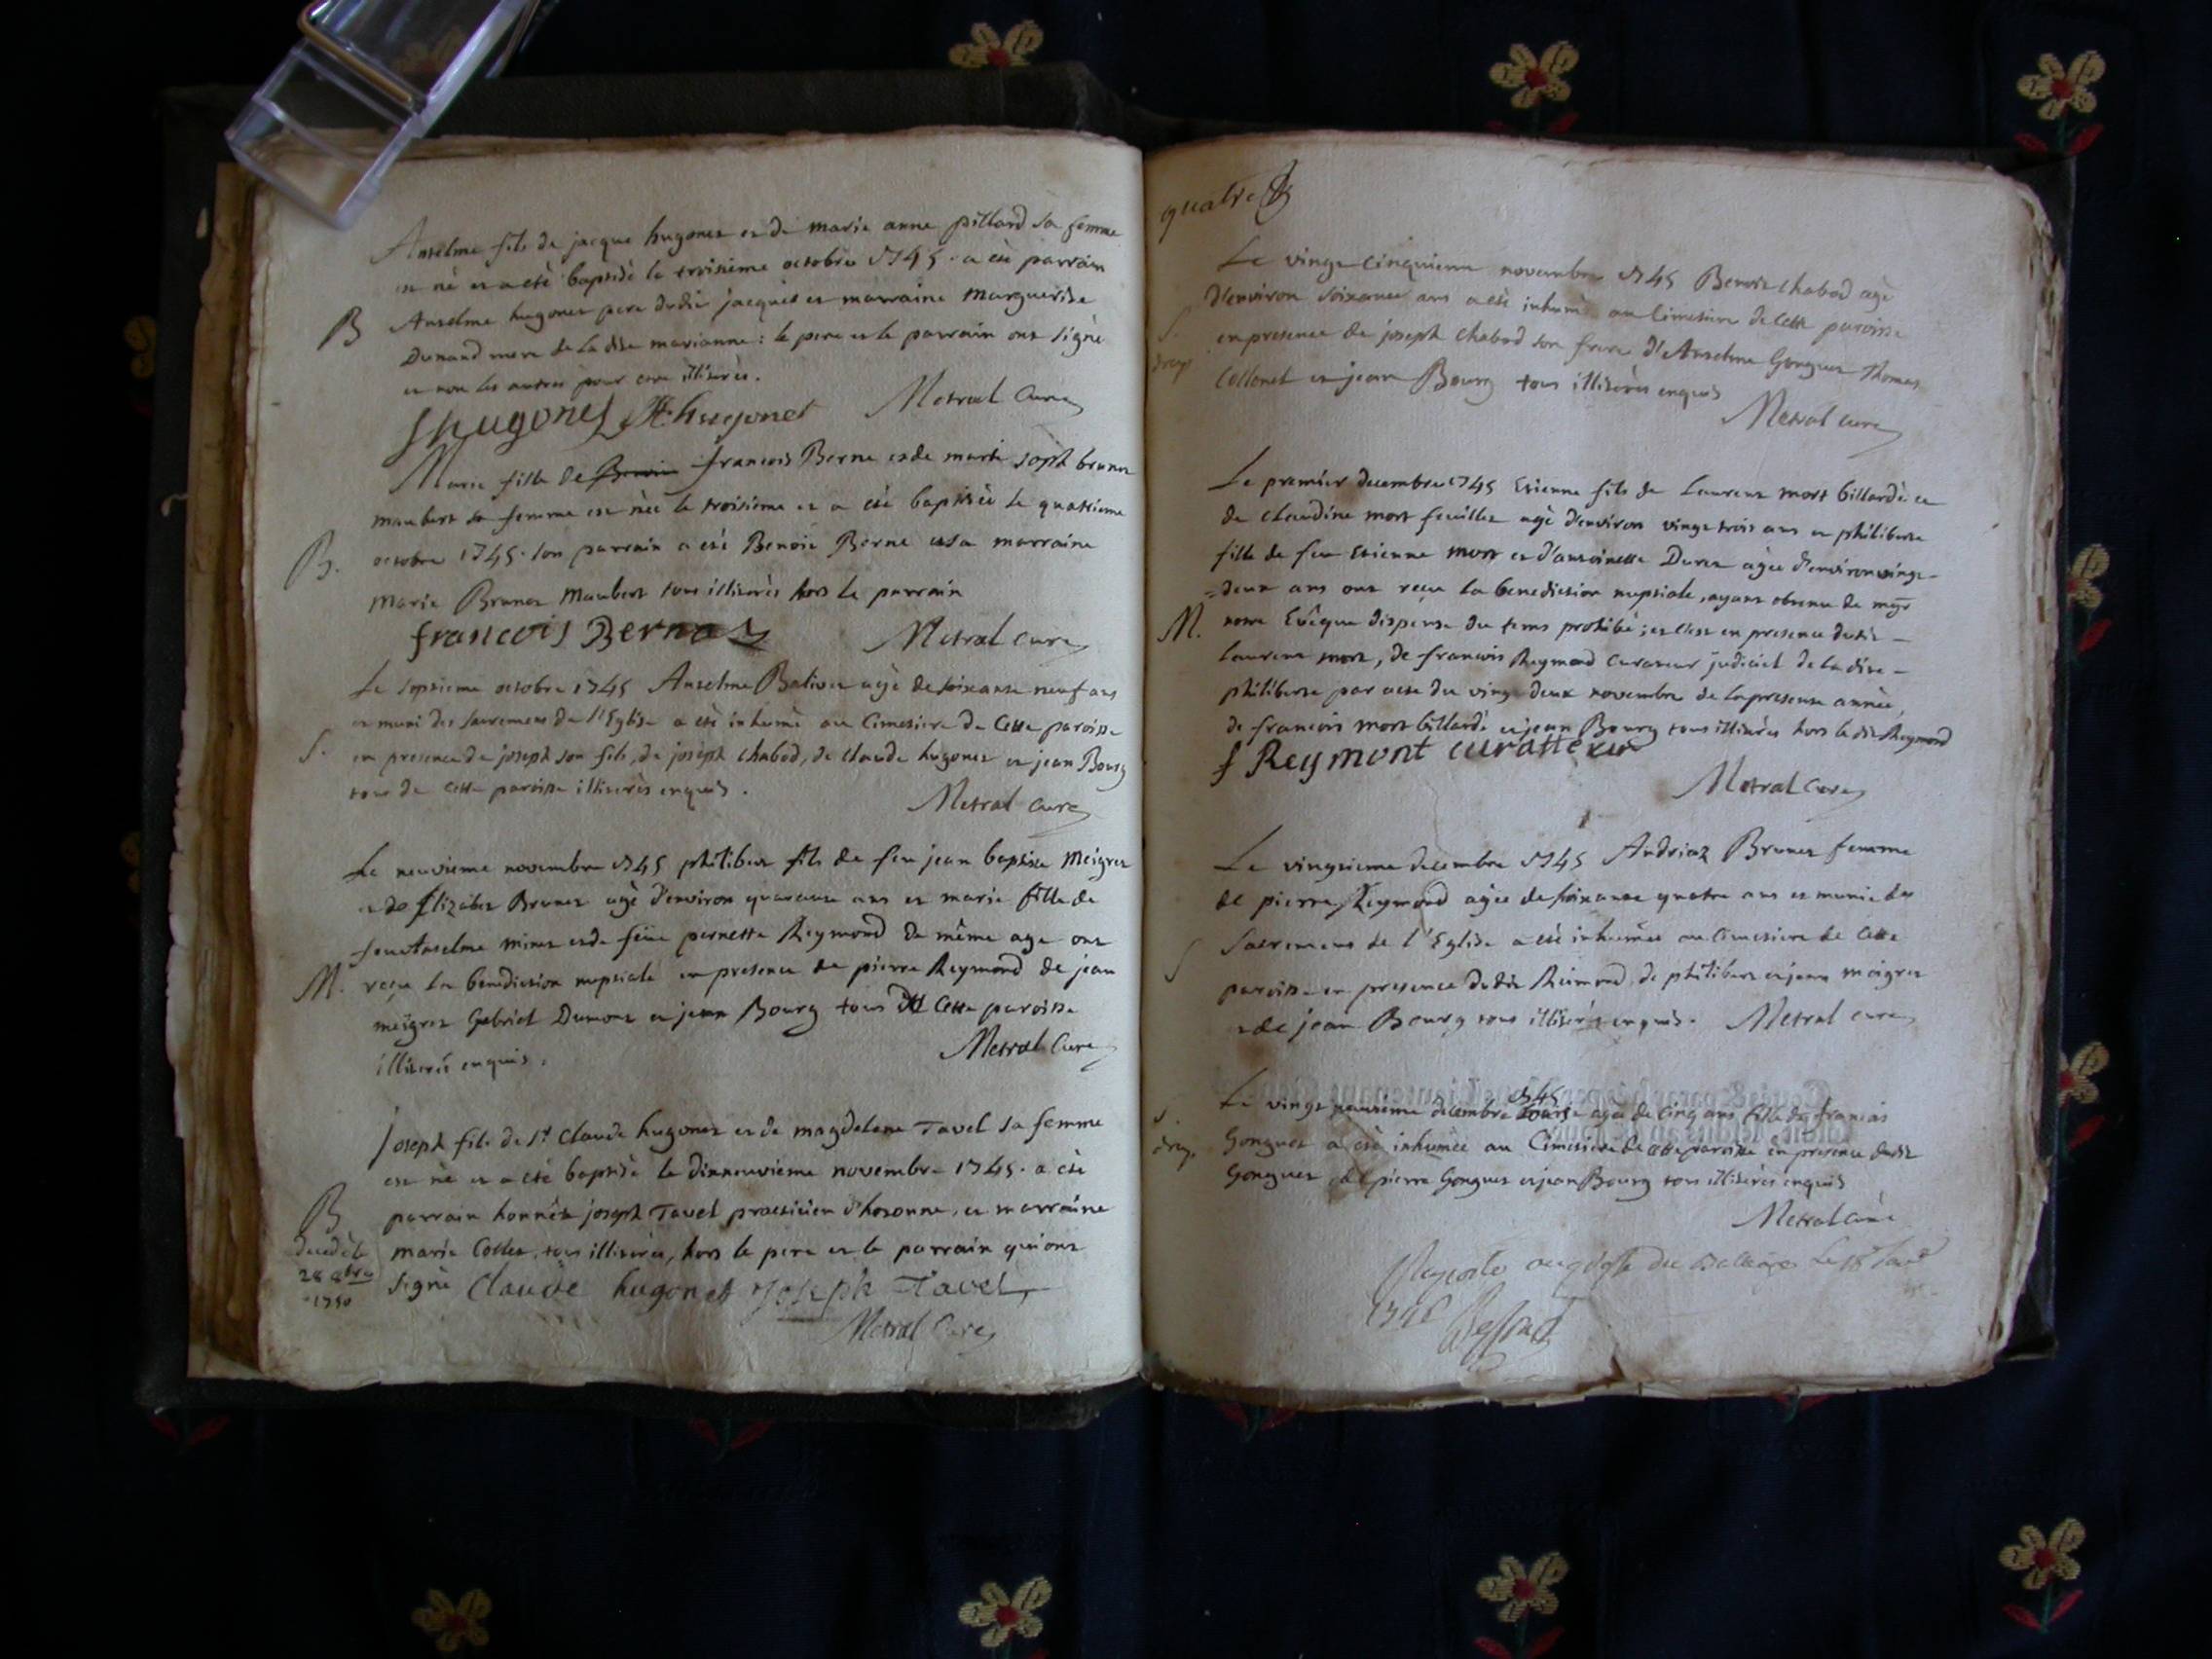 Anselme fils de jacque hugonet et de marie anne pillard sa femme
est né et a eté baptisé le troisieme octobre 1745. a eté parrain
B Anselme hugonet pere dudit jacques et marraine Marguerite
Dunand mere de la dite marianne: le pere et le parrain ont signé
et non les autres pour etre illiterés.
J hugonet A hugonet Metral Curé
Marie fille de francois Berne et de marie joseph brunet
maubert sa femme est née le troisieme et a eté baptisée le quatrieme
B. octobre 1745. son parrain a eté Benoit Berne et sa marraine
Marie Brunet Maubert tous illiterés hors le parrain
francois Berna Metral curé
Le septieme octobre 1745 Anselme Balivet agé de soixante neuf ans
et muni des sacremens de l'Eglise a eté inhumé au Cimetiere de Cette paroisse
S. en presence de joseph son fils, de joseph Chabod, de claude hugonet et jean Bourg
tous de cette paroisse illiterés enquis.
Metral curé
Le neuvieme novembre 1745 philibert fils de feu jean baptiste Meigret
et de Elizabet Brunet agé d'environ quarante ans et marie fille de
feu Anselme minet et de feüe pernette Reymond de même age ont
M. reçu la benediction nuptiale en presence de pierre Reymond de jean
meigret Gabriel Dumont et jean Bourg tous de Cette paroisse
illiterés enquis. Metral Curé
joseph fils de Sr Claude hugonet et de magdelene Tavel sa femme
est né et a eté baptisé le dixneuvieme novembre 1745. a eté
B parrain honnête joseph Tavel praticien d'hotonne, et marraine
decedé le marie Collet, tous illiterés, hors le pere et le parrain qui ont
28 8bre signé Claude hugonet Joseph Tavel
1750
Metral Curé
quatre
Le vingt cinquieme novembre 1745 Benoit Chabod agé
d'environ soixante ans a eté inhumé au Cimetiere de Cette paroisse
S. en presence de joseph Chabod son frere d'Anselme Gonguet Thomas
Collonet et jean Bourg tous illiterés enquis
Metral curé
Le premier decembre 1745 Etienne fils de Laurent mort billardé et
de Claudine mort feuillet agé d'environ vingt trois ans et philiberte
fille de feu Etienne mort et d'antoinette Duret agée d'environ vingt-
=deux ans ont reçu la benediction nuptiale, ayant obtenu de mgr
M. notre Evêque dispense du tems prohibé; et c'est en presence dudit
laurent mort, de francois Reymond Curateur judiciel de la dite
philiberte par acte du vingt deux novembre de la presente année,
de francois mort billardé et jean Bourg tous illiterés hors ledit Reymond
f Reymont curatteur
Metral Curé
Le vingtieme decembre 1745 Andriaz Brunet femme
de pierre Reymond agée de soixante quatre ans et munie des
S Sacremens de l'Eglise a eté inhumée au Cimetiere de Cette
paroisse en presence dudit Reimond, de philibert et jean meigret
et de jean Bourg tous illiterés enquis. Metral curé
1745
S. Le vingt neuvieme decembre agée de cinq ans fille de francois
Gonguet a eté inhumée au Cimetiere de cette paroisse en presence dudit
Gonguet de pierre Gonguet et jean Bourg tous illiterés enquis
Metral Curé
1746